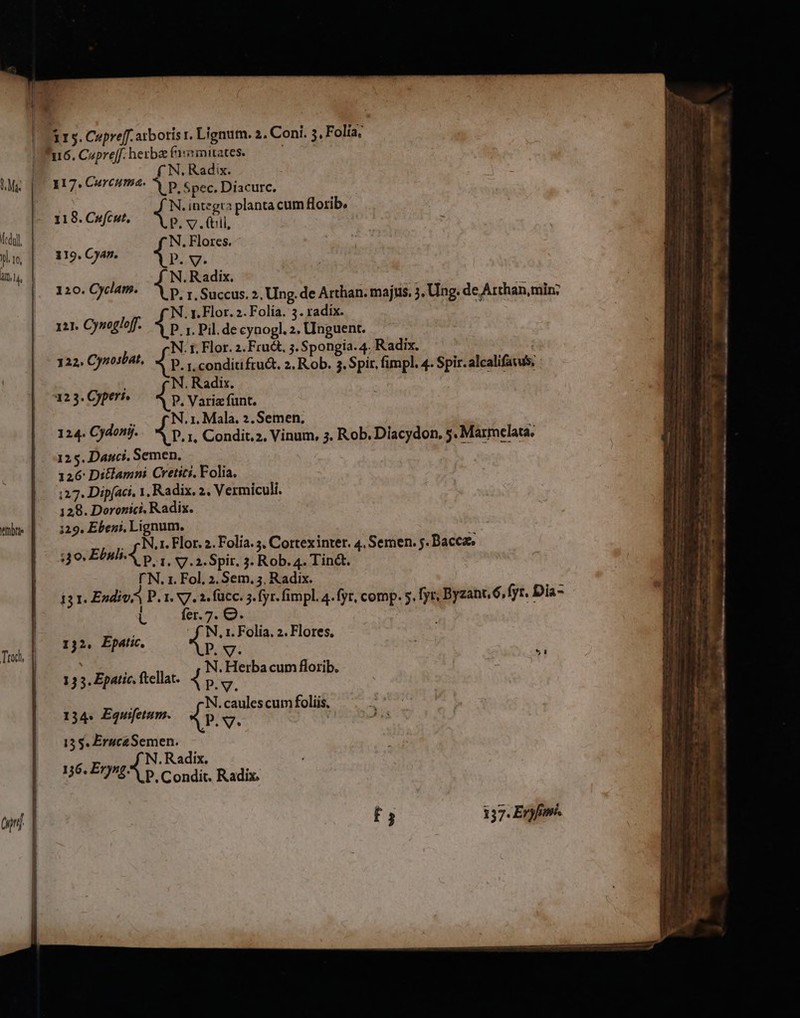 115. Cupreſſ. arboris 1. Lignum. 2. Coni. 3. Folia.
116. Cupreſſ. herbæ ſummitates.
117. Curcumæ. { N. Radix.
P. Spec. Diacurc.
118. Cuſcut. { N. integra planta cum florib.
P. 🜄. ſtill.
119. Cyan. { N. Flores.
P. 🜄.
120. Cyclam. { N. Radix.
P. 1. Succus. 2. Ung. de Arthan. majus. 3. Ung. de Arthan. min.
121. Cynogloſſ. { N. 1. Flor. 2. Folia. 3. radix.
P. 1. Pil. de cynogl. 2. Unguent.
122. Cynosbat. { N. 1. Flor. 2. Fruct. 3. Spongia. 4. Radix.
P. 1. conditi fruct. 2. Rob. 3. Spir. ſimpl. 4. Spir. alcaliſatus.
123. Cyperi. { N. Radix.
P. Variæ ſunt.
124. Cydonij. { N. 1. Mala. 2. Semen.
P. 1. Condit. 2. Vinum. 3. Rob. Diacydon. 5. Marmelata.
125. Dauci. Semen.
126. Dictamni Cretici. Folia.
127. Dipſaci. 1. Radix. 2. Vermiculi.
128. Doronici. Radix.
129. Ebeni. Lignum.
130. Ebuli. { N. 1. Flor. 2. Folia. 3. Cortex inter. 4. Semen. 5. Baccæ.
P. 1. 🜄. 2. Spir. 3. Rob. 4. Tinct.
131. Endiv. { N. 1. Fol. 2. Sem. 3. Radix.
P. 1. 🜄. 2. ſucc. 3. ſyr. ſimpl. 4. ſyr. comp. 5. ſyr. Byzant. 6. ſyr. Dia-
ſer. 7. 🜔.
132. Epatic. { N. 1. Folia. 2. Flores.
P. 🜄.
133. Epatic. ſtellat. { N. Herba cum florib.
P. 🜄.
134. Equiſetum. { N. caules cum foliis.
P. 🜄.
135. Erucæ Semen.
136. Eryng. { N. Radix.
P. Condit. Radix.
f 3 137. Eryſimi.